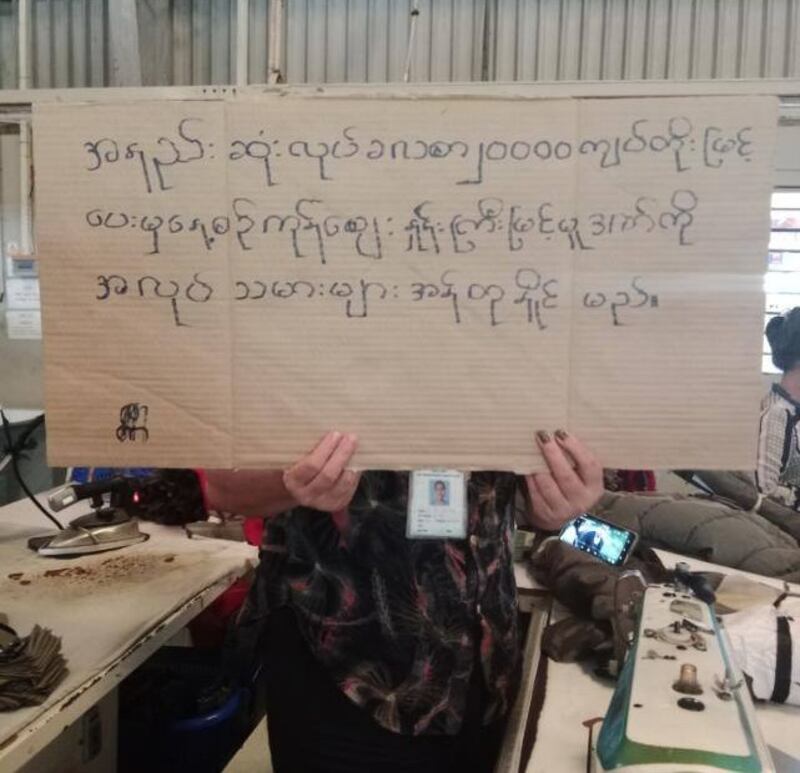 အနည်းဆုံးလုပ်ခလစာ၂၀၀၀၀ကျပ်တိုးမြင့်
ပေးမှနေ့စဉ်ကုန်ဈေးနှုန်းကြီးမြင့်မှုဒဏ်ကို
အလုပ်သမားများအန်တုနှိုင်မည်။